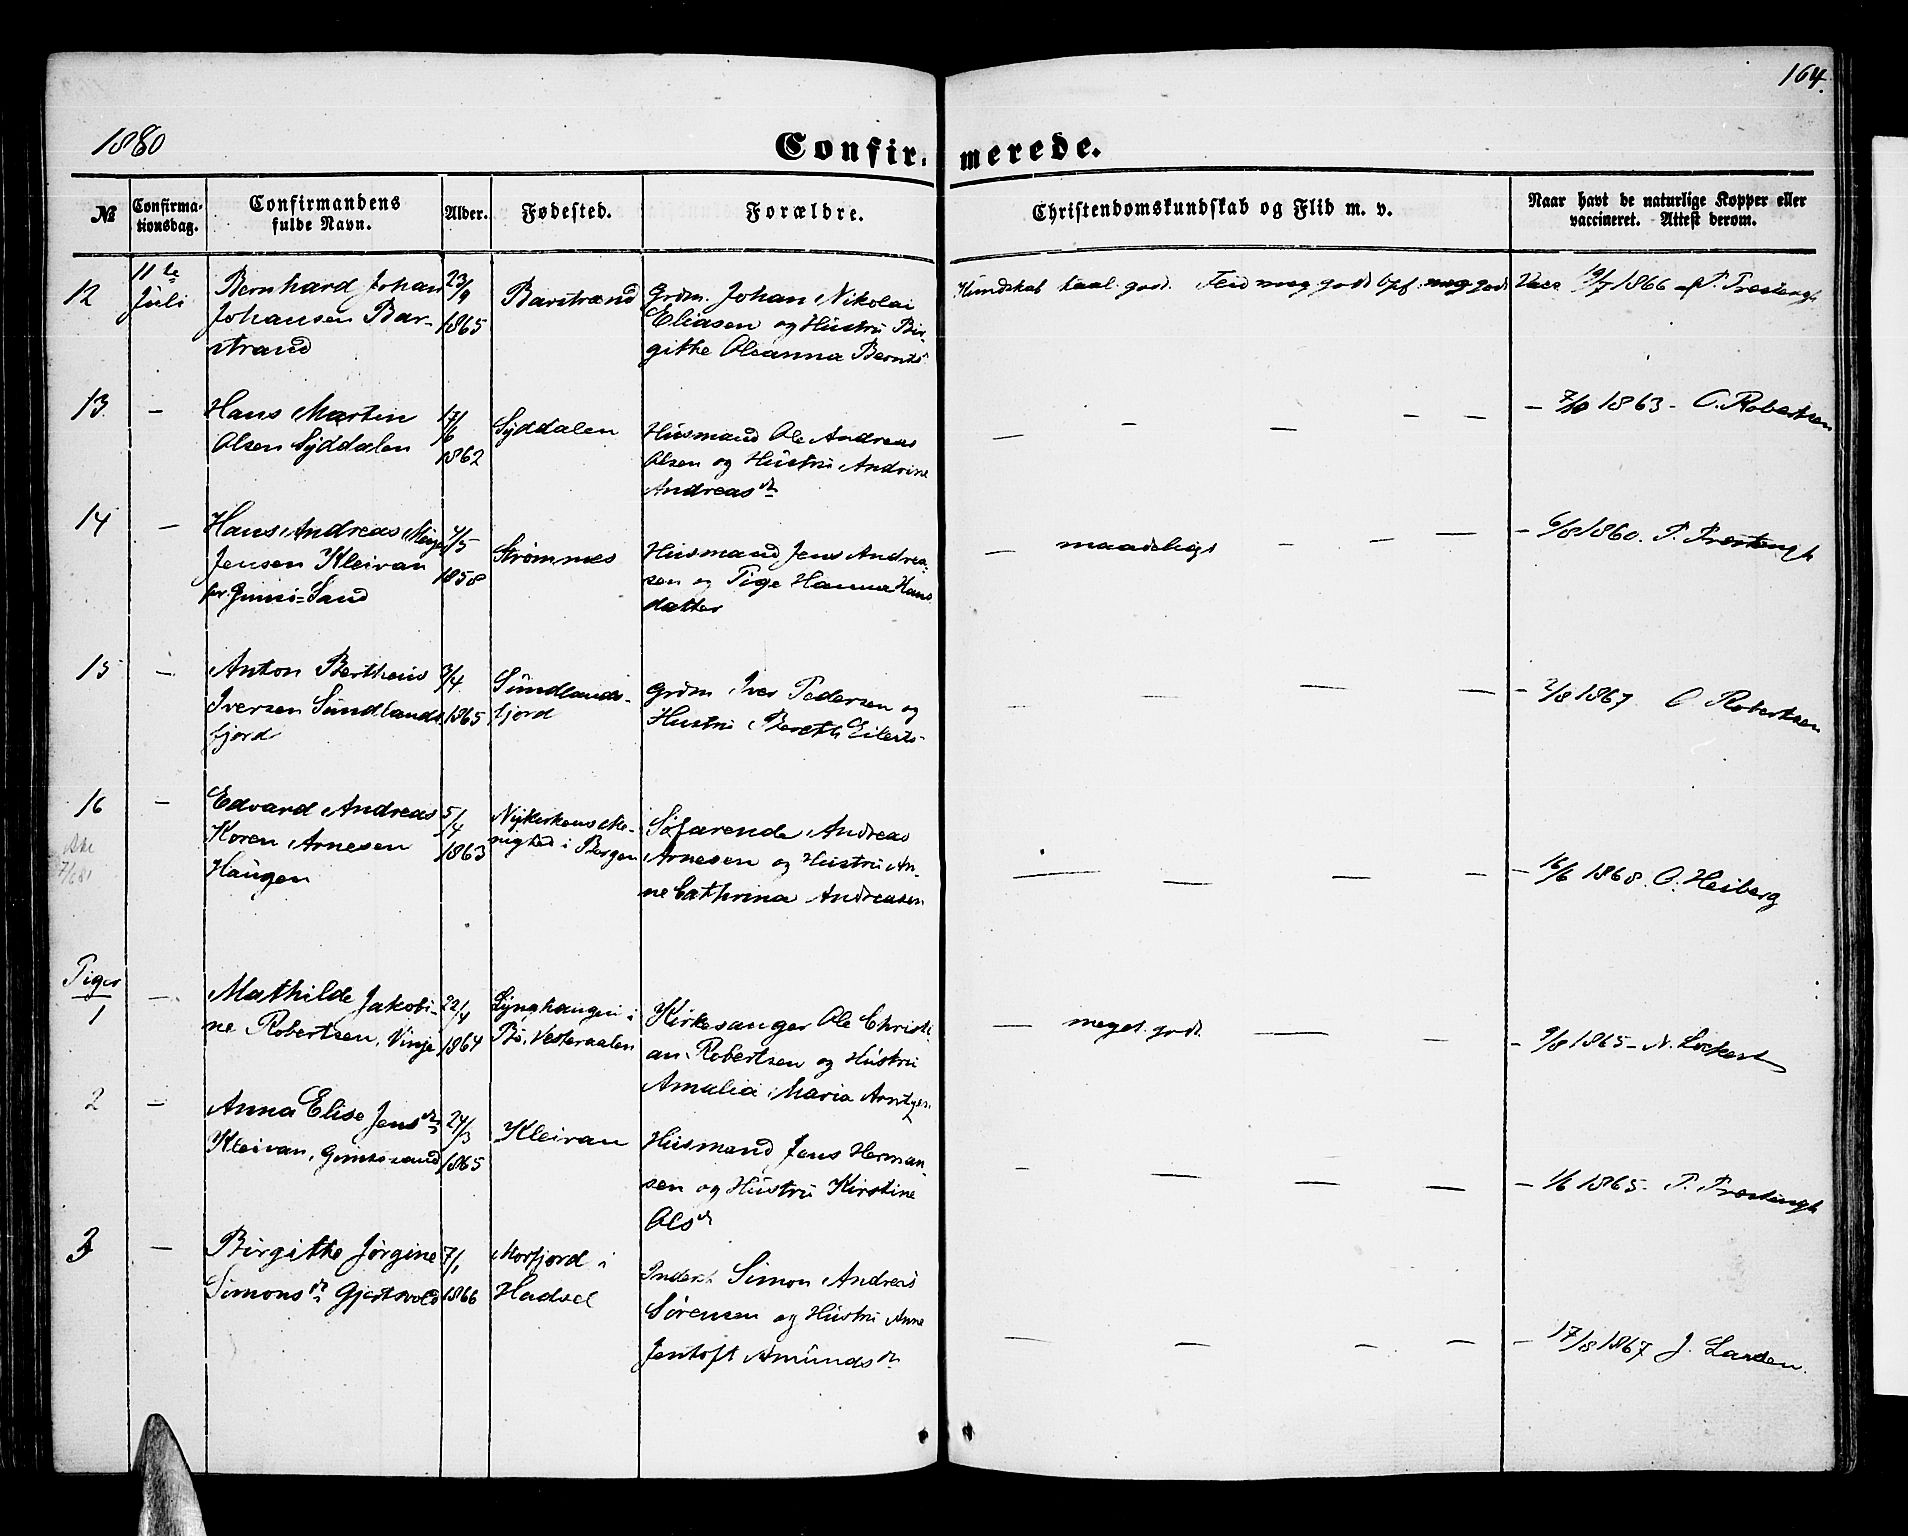 164.
1880
Confirmerede.
№
Confirmationsdag.
Confirmandens fulde Navn.
Alder.
Fødested.
Forældre.
Christendomskundskab og Flid m. v.
Naar havt de naturlige Kopper eller vaccineret. Attest derom.
12
11te Juli
Bernhard Johan
Johansen Bar-
strand
23/9
1865
Barstrand
Grdm. Johan Nikolai
Eliasen og Hustru Bir-
gitte Oleanna Bernts
Kundskab taal. godt. Flid meg godt Opf. meg godt
Vacc 19/7 1866 af P. Præstengh
13
—
Hans Martin
Olsen Syddalen
17/6
1862
Syddalen
Husmand Ole Andreas
Olsen og Hustru Andrine
Andreasdr
— — — — —
— 7/10 1863 - O. Robertsen
14
—
Hans Andreas
Jensen Kleivan
Gimsö-Sand
4/5
1858
Strømnes
Husmand Jens Andrea-
sen og Pige Hanna Hans
datter
— maadeligt — — —
— 6/8 1860. P. Præstengh
15
—
Anton Bertheus
Iversen Sundlands
fjord
3/4
1865
Sundlands-
fjord
Grdm Iver Pedersen og
Hustru Bereth Eilerts-
— — — —
— 2/8 1867 O Robertsen
16
—
Edvard Andreas
Koren Arnesen
Haugen
5/4
1863
Nykirkens Me-
nighed i Bergen
Søfarende Andreas
Arnesen og Hustru An-
ne Cathrina Andreasen
— — — —
— 16/6 1868. O. Heiberg
Piger
1
—
Mathilde Jakobi-
ne Robertsen, Vinje
22/4
1864
Lynghaugen i
Bö, Vesteraalen
Kirkesanger Ole Christi
an Robertsen og Hustru
Amalia Maria Arntzen
— meget godt — —
— 9/8 1865 - N. Lockert
2
—
Anna Elise Jensdr
Kleivan, Gimsösand
24/3
1865
Kleivan
Husmand Jens Herman-
sen og Hustru Kirstine
Olsdr
— — — —
— 1/6 1865. P. Præstengh
3
—
Birgitte Jørgine
Simonsdr Gjertsvold
7/1
1866
Morfjord i
Hadsel
Inderst Simon Andreas
Sørensen og Hustru Anne
Jentoft Amundsdr
— — — —
— 17/8 1867 J. Larsen.